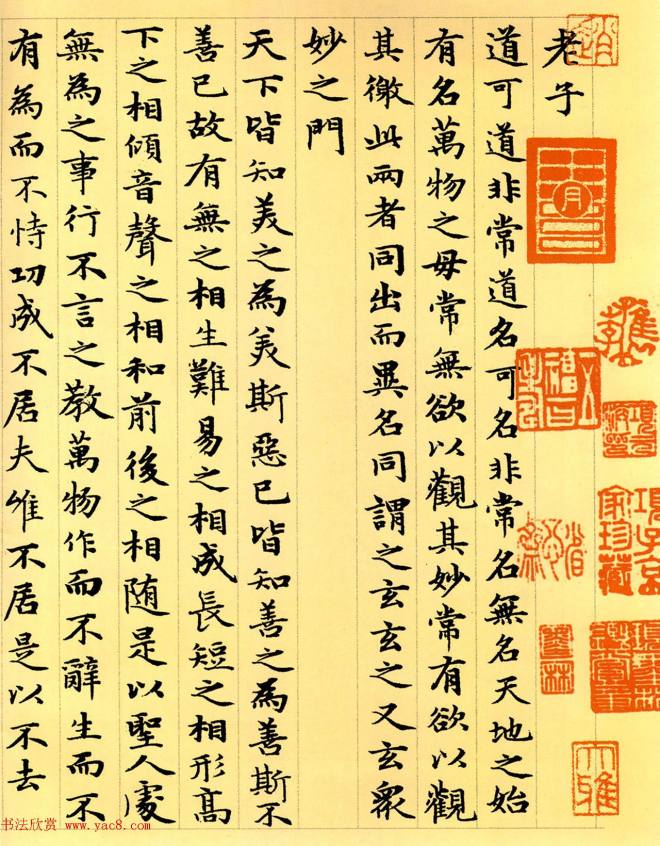 老子
道可道非常道名可名非常名無名天地之始
有名萬物之母常無欲以觀其妙常有欲以觀
其徼此兩者同出而異名同謂之玄玄之又玄眾
妙之門
天下皆知美之為美斯惡已皆知善之為善斯不
善已故有無之相生難易之相成長短之相形高
下之相傾音聲之相和前後之相随是以聖人處
無為之事行不言之教萬物作而不辭生而不
有為而不恃功成不居夫惟不居是以不去
項子京家珍藏
书法欣赏 www.yac8.com